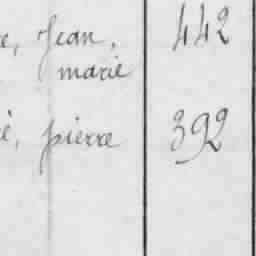 e, Jean, 442
marie
é, pierre 392